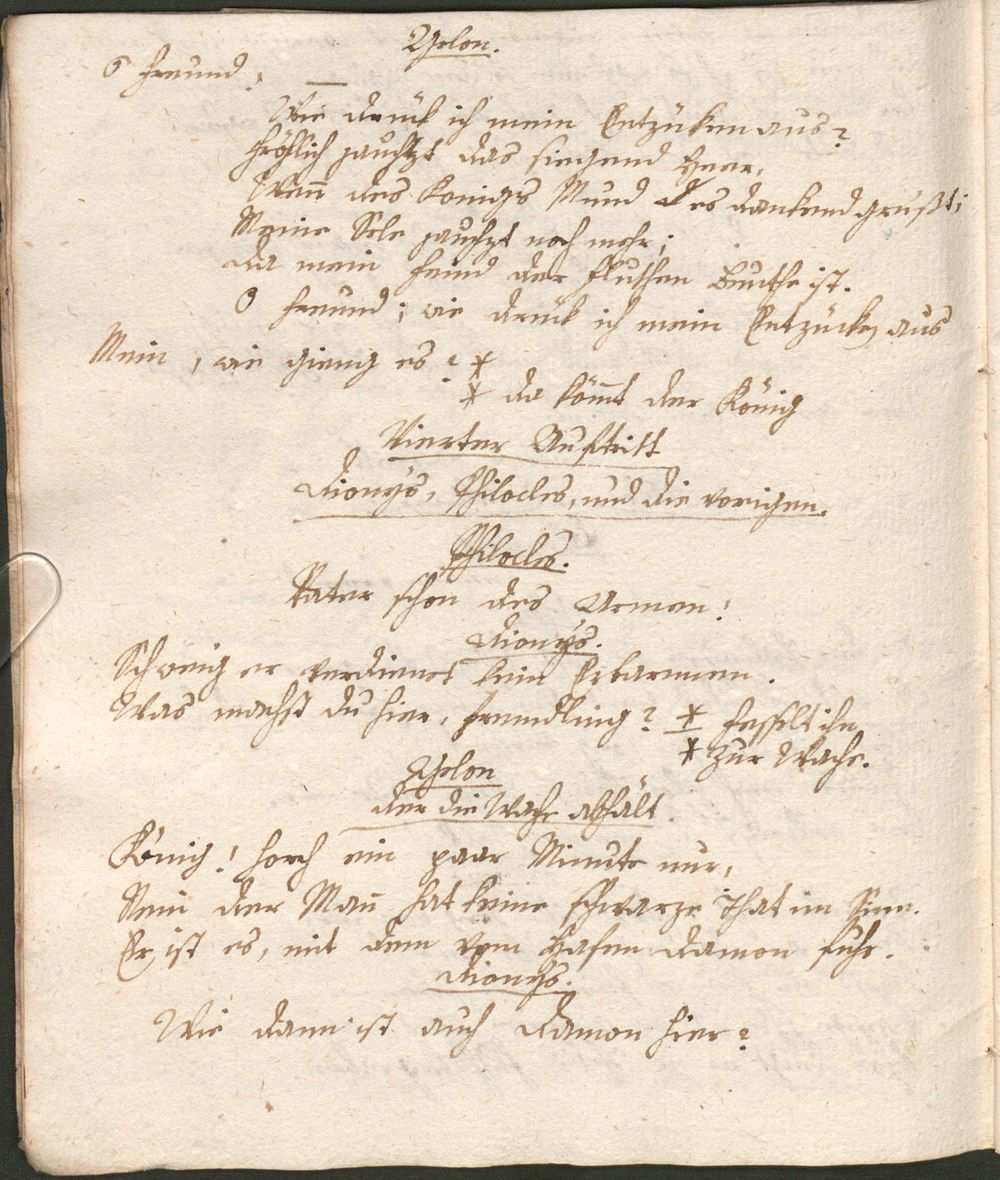 Gelon.
O Freund! —
Wie drück ich mein Entzüken aus?
Fröhlich jauchzt das siegend Heer,
Wenn des Königs Mund es dankend grüßt;
Meine Sele jauchzt noch mehr;
Da mein Feind der Fluthen Beuthe ist.
O Freund; wie drück ich mein Entzücken aus
Mein, wie gieng es? *
* da kömt der König
Vierter Auftritt
Dionys, Philocles, und die vorigen.
Philocles.
Vater schon des Armen!
Dionys.
Schweig er verdienet kein Erbarmen.
Was machst du hier, Fremdling? * Fesselt ihn
* zur Wache.
Gelon
der die Wache abhält.
König! horch ein paar Minute nur,
Nein der Mann hat keine schwarze That im Sinn.
Er ist es, mit dem vom Hafen Damon fuhr.
Dionys.
Wie dann ist auch Damon hier?